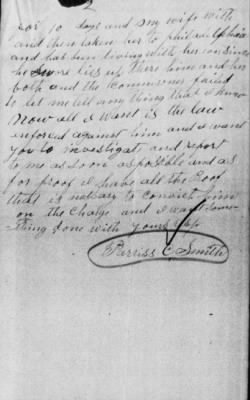 for 10 days and my wife with
and then taken her to philadelphia
and has been living with her concience
he swore lies up there him and her
both and the Commisoner failed
to let me tell any thing that I knew
Now all I want is the law
enforced against him and I want
you to investigat and report
to me as soon as posible and as
for proof I have all the Proof
that is nessary to convict him
on the Charge and I want some-
thing done with yours
Perriss C. Smith